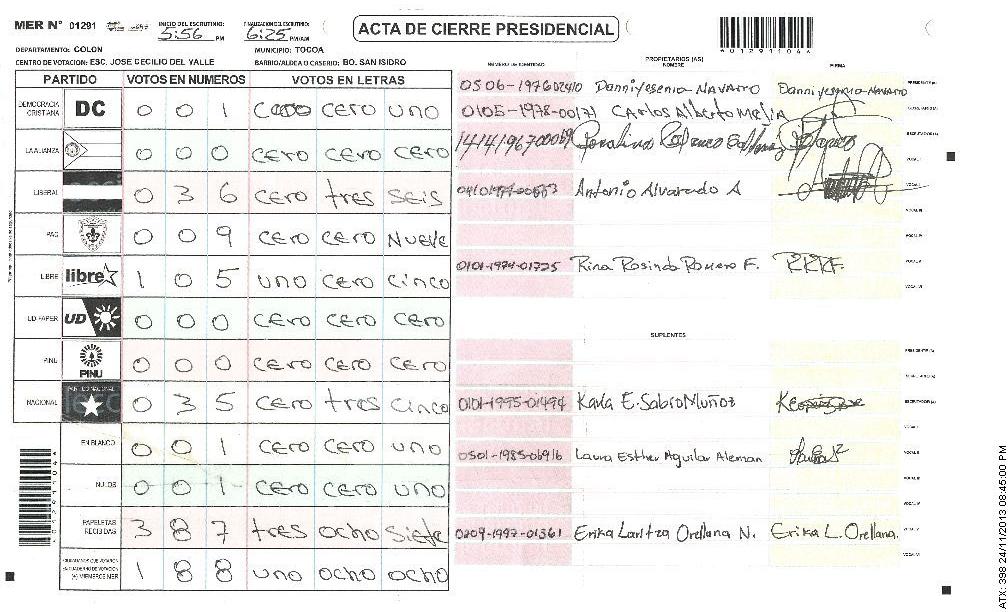 MER N° 01291
INICIO DEL ESCRUTINIO: 5:56 PM
FINALIZACION DEL ESCRUTINIO: 6:25 PM/AM
ACTA DE CIERRE PRESIDENCIAL
DEPARTAMENTO: COLON
MUNICIPIO: TOCOA
CENTRO DE VOTACION: ESC. JOSE CECILIO DEL VALLE
BARRIO/ALDEA O CASERIO: BO. SAN ISIDRO
PARTIDO VOTOS EN NUMEROS VOTOS EN LETRAS
DEMOCRACIA CRISTIANA DC 0 0 1 CERO CERO UNO
LA ALIANZA 0 0 0 CERO CERO CERO
LIBERAL 0 3 6 CERO tres SEIS
PAC 0 0 9 CERO CERO NUEVE
LIBRE libre 1 0 5 UNO CERO CINCO
UD FAPER UD 0 0 0 CERO CERO CERO
PINU PINU 0 0 0 CERO CERO CERO
NACIONAL 0 3 5 CERO tres CINCO
EN BLANCO 0 0 1 CERO CERO UNO
NULOS 0 0 1 CERO CERO UNO
PAPELETAS RECIBIDAS 3 8 7 tres OCHO Siete
CIUDADANOS QUE VOTARON EN CUADERNO DE VOTACION (+) MIEMBROS MER 1 8 8 UNO OCHO OCHO
NUMERO DE IDENTIDAD PROPIETARIOS (AS) NOMBRE FIRMA
0506-1976 02410 Danniyesenia NAVARRO Danniyesenia NAVARRO PRESIDENTE (A)
0105-1978-00171 CArlos Alberto Mejia SECRETARIO (A)
ESCRUTADOR (A)
VOCAL I
Antonio Alvarado A VOCAL II
VOCAL III
VOCAL IV
0101-1974-01725 Rina Rosinda Romero F. RRRF. VOCAL V
VOCAL VI
SUPLENTES
PRESIDENTE (A)
SECRETARIO (A)
0101-1995-01494 Karla E. Sabio Muñoz ESCRUTADOR (A)
VOCAL I
0501-1985-06916 Laura Esther Aguilar Aleman VOCAL II
VOCAL III
VOCAL IV
0209-1997-01361 Erika Laritza Orellana N. Erika L. Orellana. VOCAL V
VOCAL VI
ATX: 398 24/11/2013 08:45:00 PM